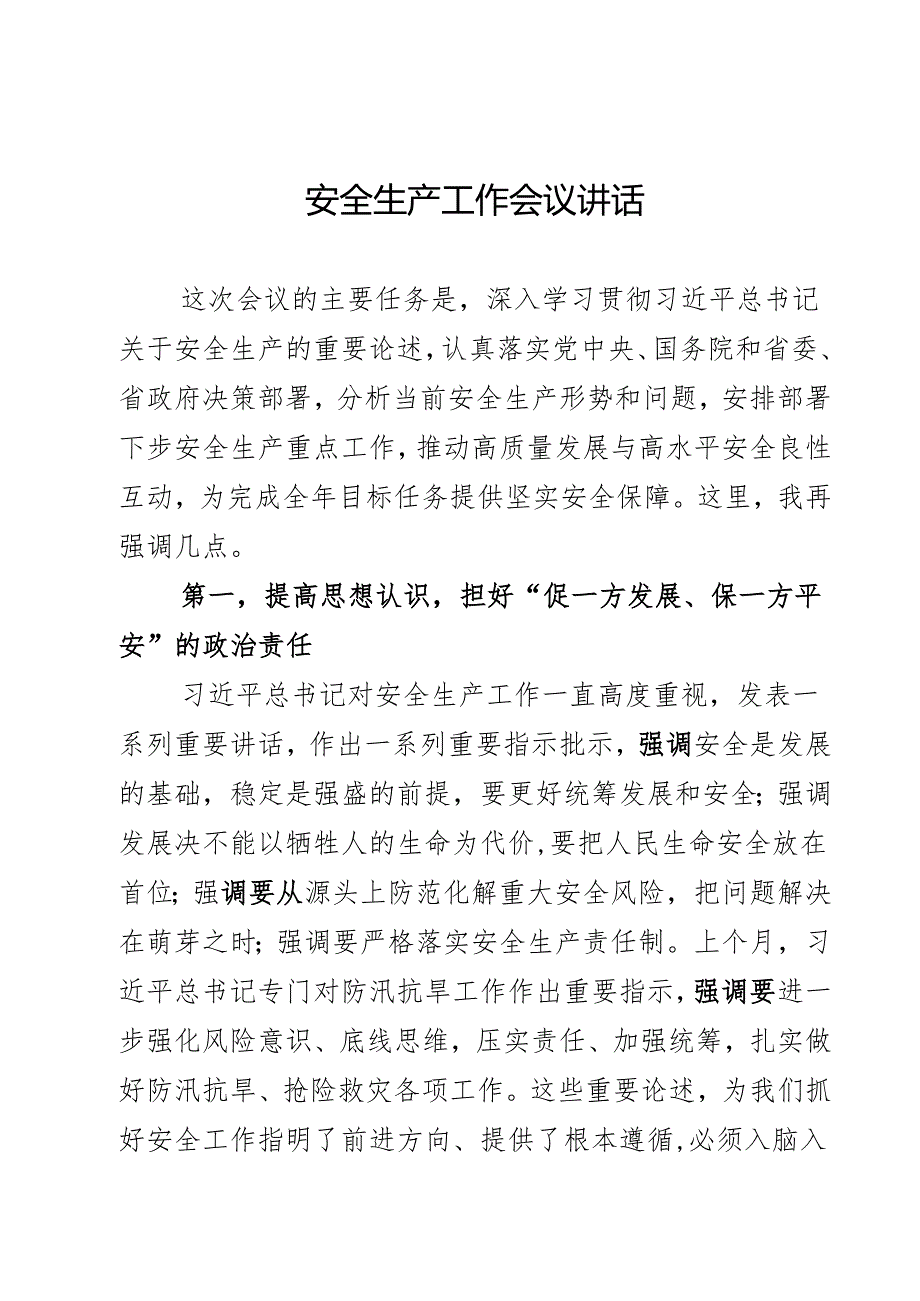 安全生产工作会议讲话
这次会议的主要任务是，深入学习贯彻习近平总书记
关于安全生产的重要论述，认真落实党中央、国务院和省委、
省政府决策部署，分析当前安全生产形势和问题，安排部署
下步安全生产重点工作，推动高质量发展与高水平安全良性
互动，为完成全年目标任务提供坚实安全保障。这里，我再
强调几点。
第一，提高思想认识，担好“促一方发展、保一方平
安”的政治责任
习近平总书记对安全生产工作一直高度重视，发表一
系列重要讲话，作出一系列重要指示批示，强调安全是发展
的基础，稳定是强盛的前提，要更好统筹发展和安全；强调
发展决不能以牺牲人的生命为代价,要把人民生命安全放在
首位；强调要从源头上防范化解重大安全风险，把问题解决
在萌芽之时；强调要严格落实安全生产责任制。上个月，习
近平总书记专门对防汛抗旱工作作出重要指示，强调要进一
步强化风险意识、底线思维，压实责任、加强统筹，扎实做
好防汛抗旱、抢险救灾各项工作。这些重要论述，为我们抓
好安全工作指明了前进方向、提供了根本遵循,必须入脑入